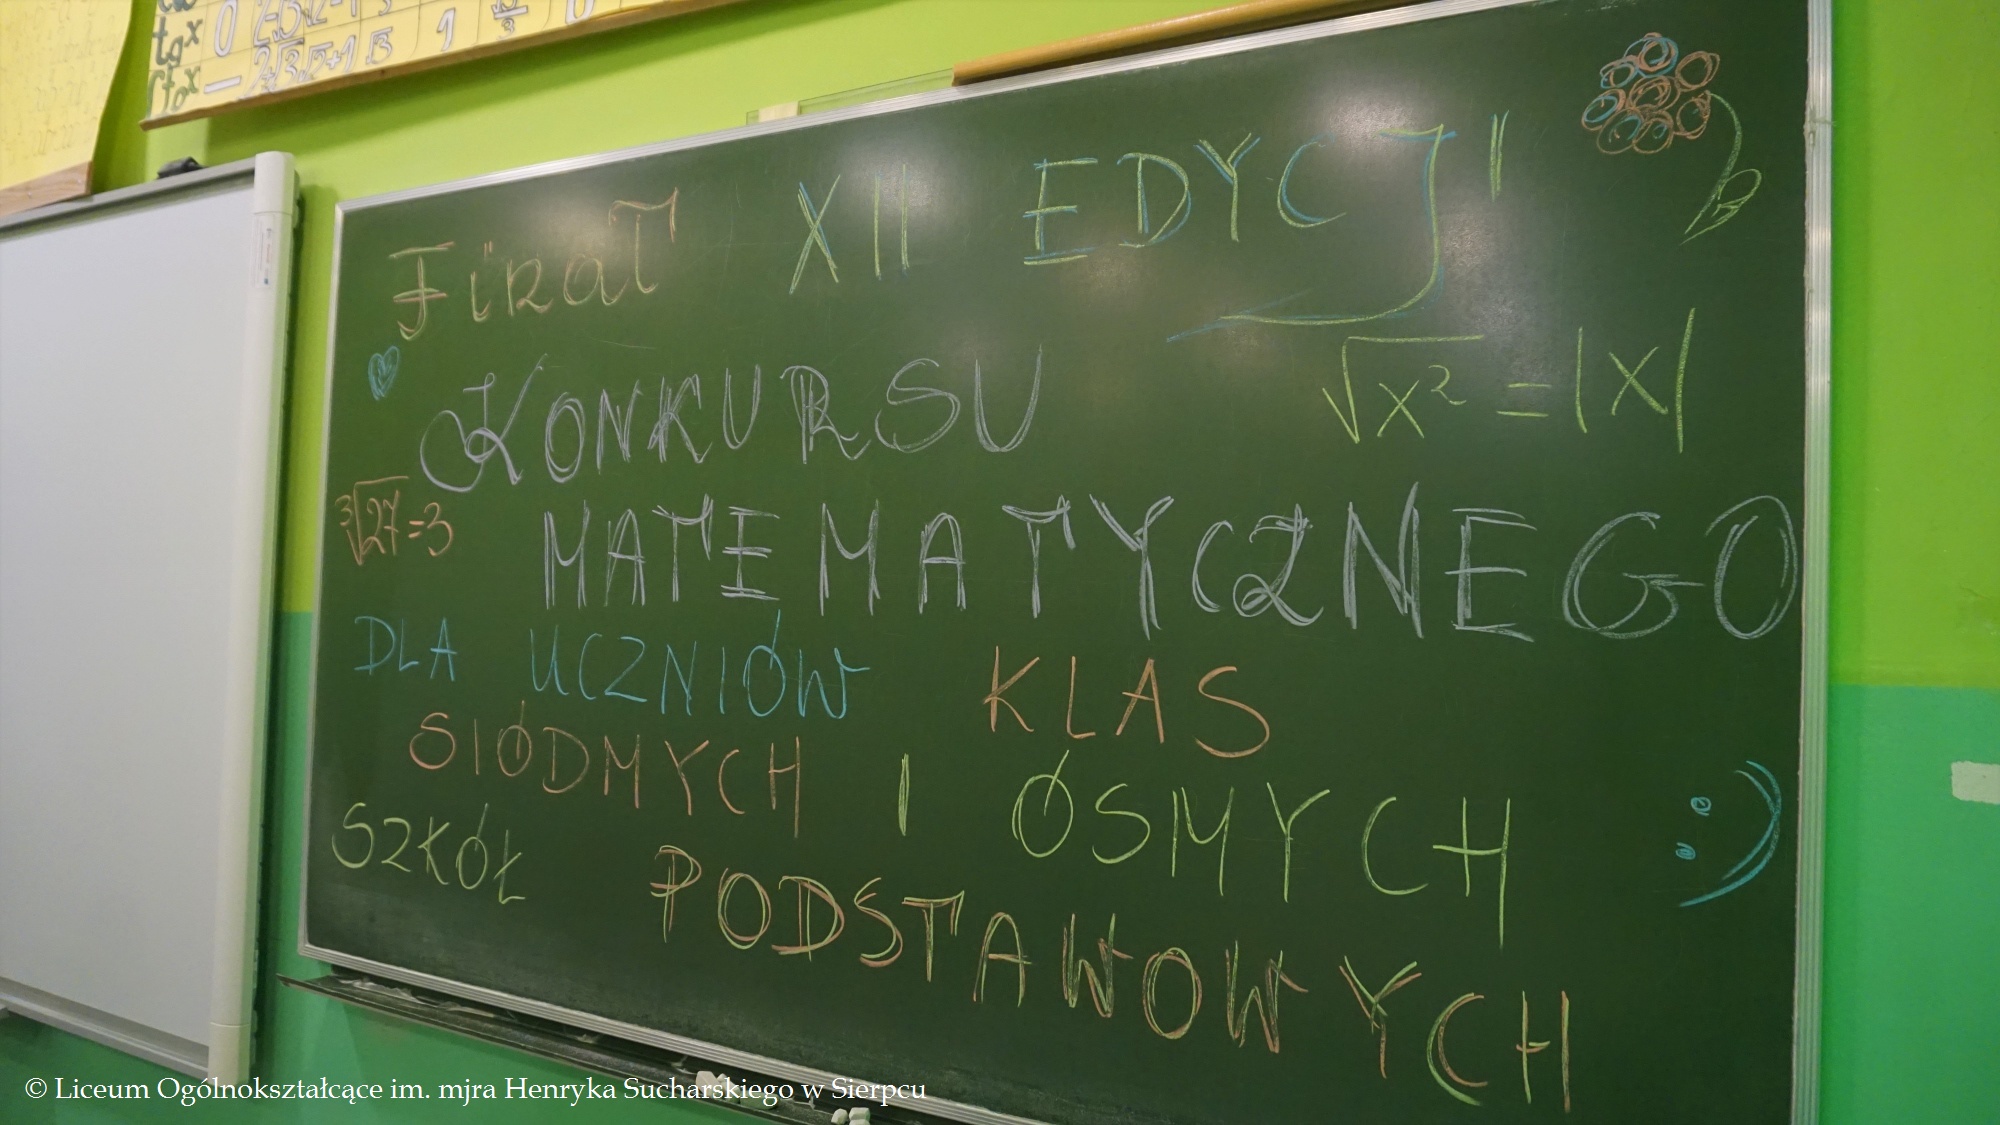 tgx 0 2-√3 √2-1 √3 1 √3/3 0
ctgx — 2+√3 √2+1 √3
FINAŁ XII EDYCJI
KONKURSU
√x² = |x|
∛27=3
MATEMATYCZNEGO
DLA UCZNIÓW KLAS
SIÓDMYCH I ÓSMYCH :)
SZKÓŁ PODSTAWOWYCH
© Liceum Ogólnokształcące im. mjra Henryka Sucharskiego w Sierpcu